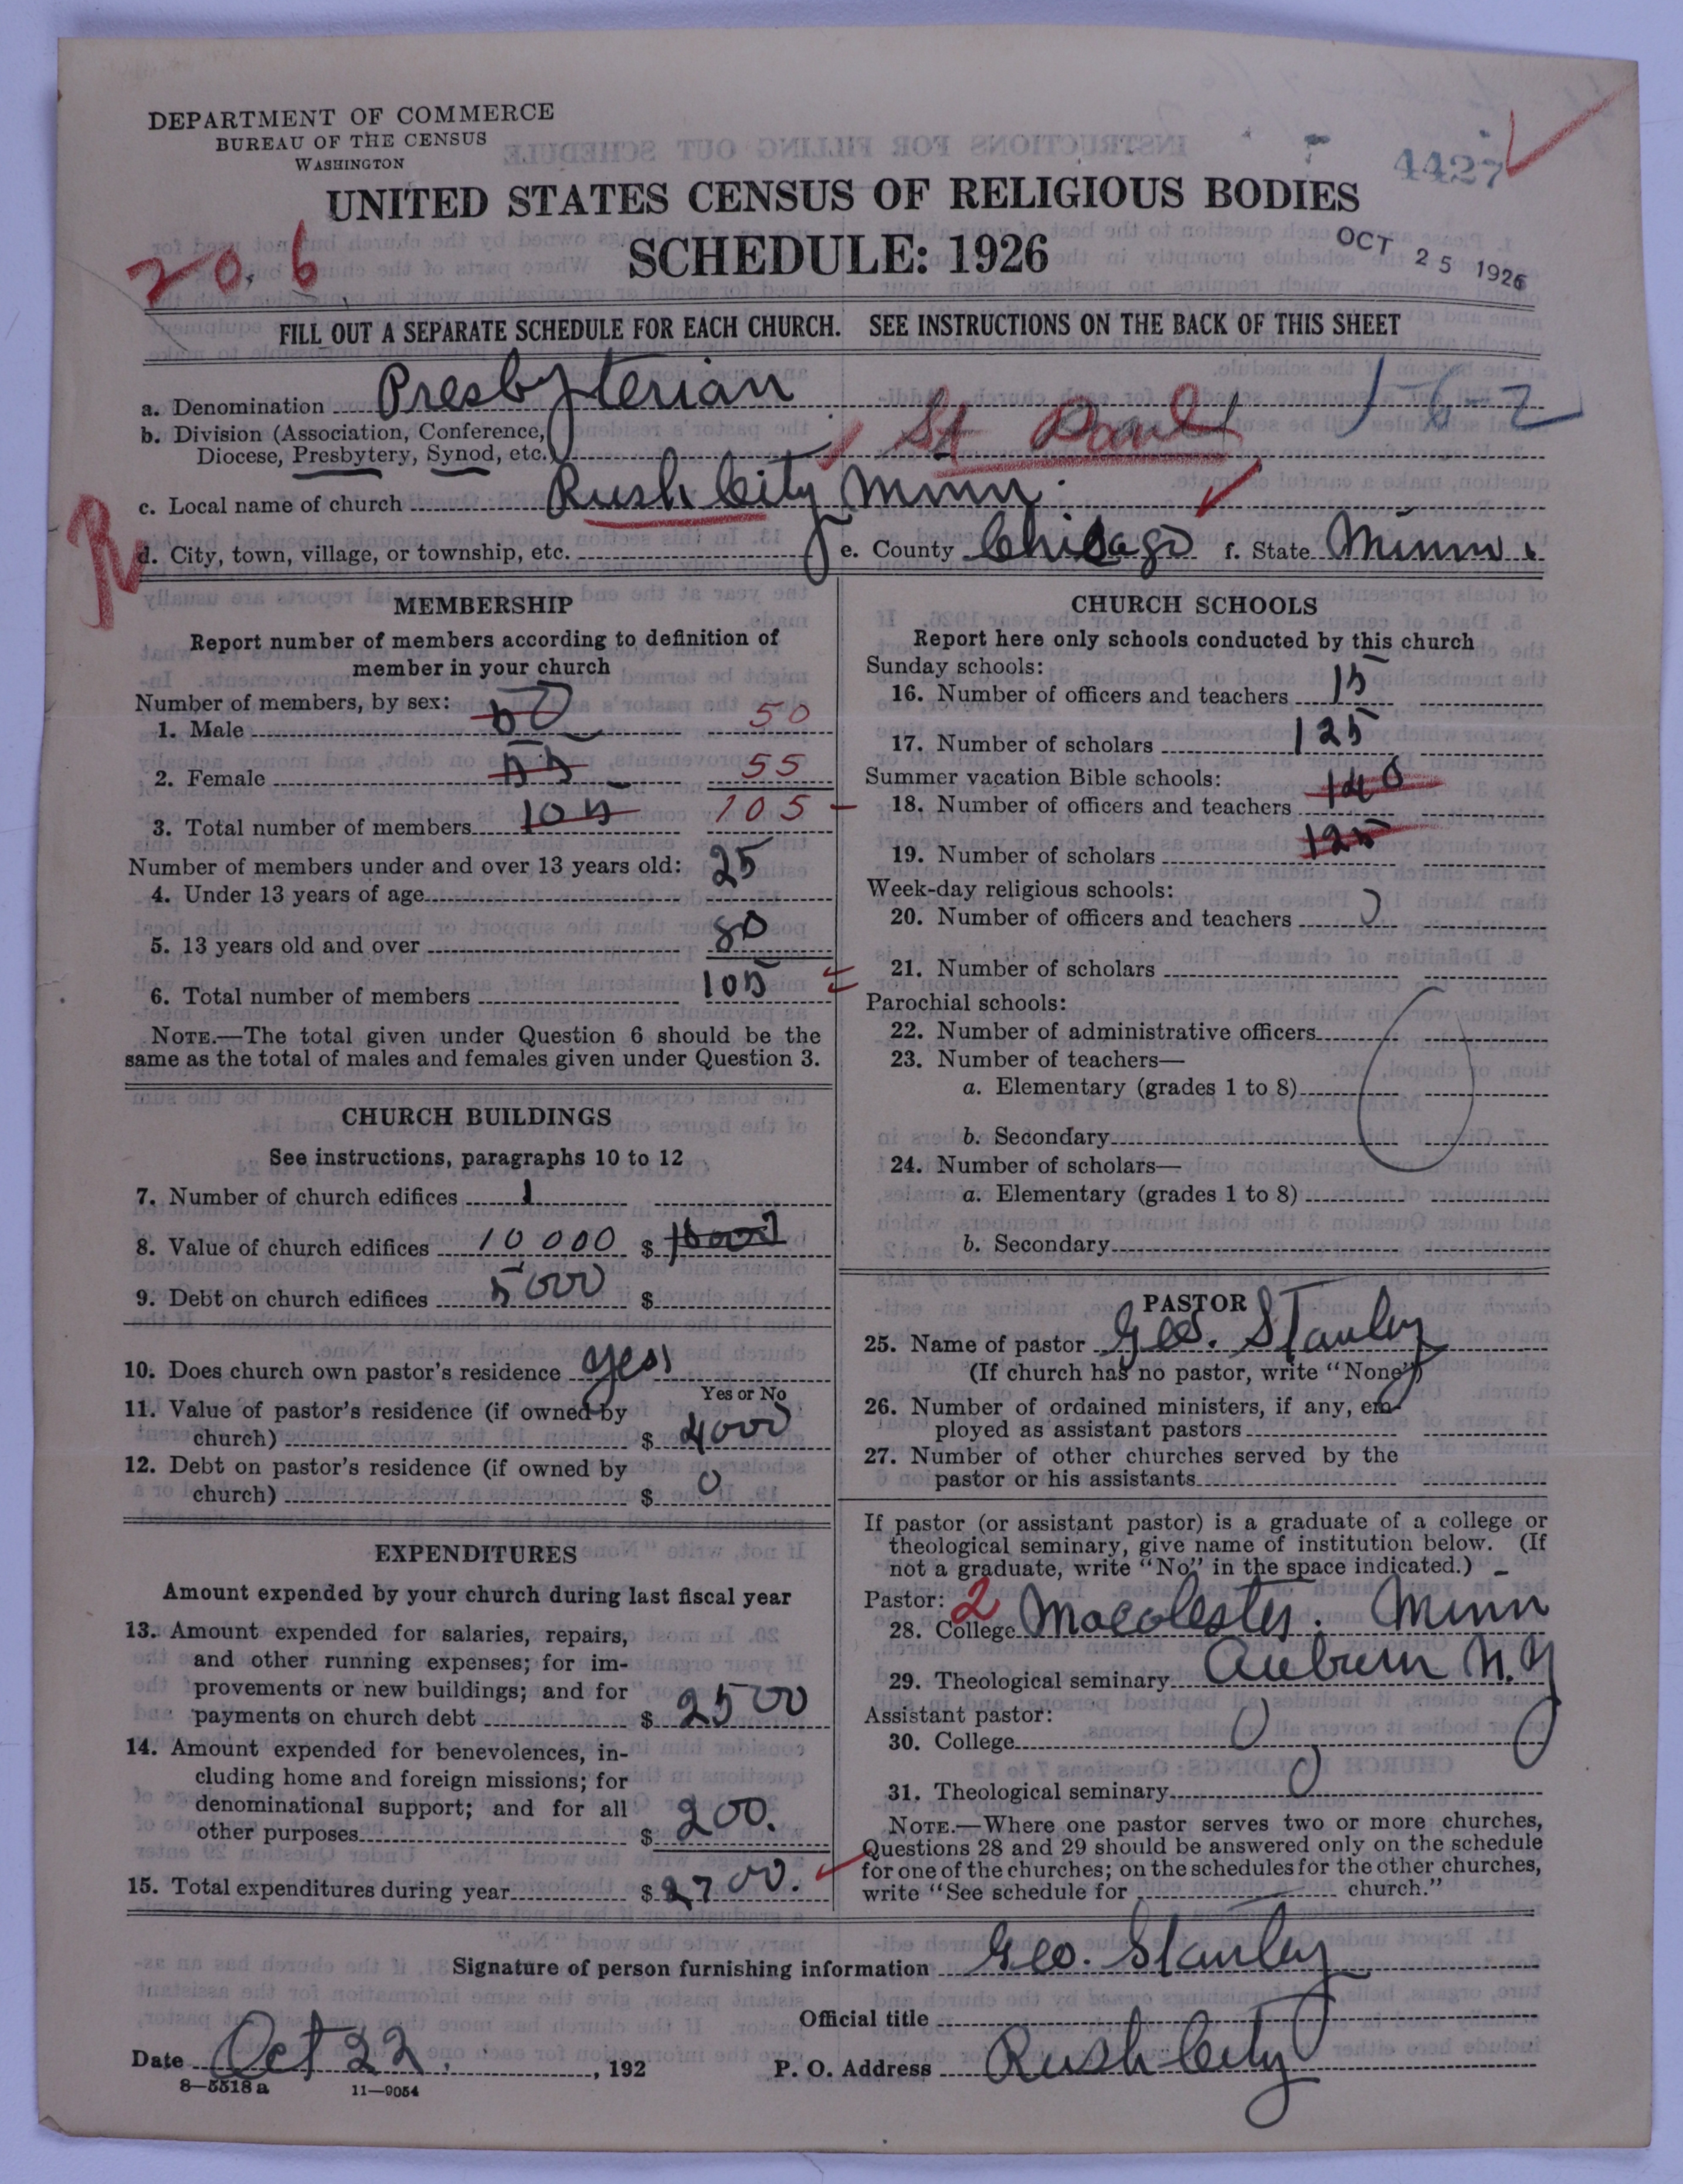 DEPARTMENT OF COMMERCE
BUREAU OF THE CENSUS
WASHINGTON
4427
UNITED STATES CENSUS OF RELIGIOUS BODIES
SCHEDULE: 1926
OCT 25 1926
20.6
FILL OUT A SEPARATE SCHEDULE FOR EACH CHURCH. SEE INSTRUCTIONS ON THE BACK OF THIS SHEET
a. Denomination Presbyterian 1-6-2
b. Division (Association, Conference,
Diocese, Presbytery, Synod, etc. St Paul
c. Local name of church Rush City Minn.
R
d. City, town, village, or township, etc. e. County Chicago f. State Minn.
MEMBERSHIP
Report number of members according to definition of
member in your church
Number of members, by sex:
1. Male 50 50
2. Female 55 55
3. Total number of members 105 105
Number of members under and over 13 years old:
4. Under 13 years of age 25
5. 13 years old and over 80
6. Total number of members 105
NOTE.—The total given under Question 6 should be the
same as the total of males and females given under Question 3.
CHURCH BUILDINGS
See instructions, paragraphs 10 to 12
7. Number of church edifices 1
8. Value of church edifices 10000 $
9. Debt on church edifices 5000 $
10. Does church own pastor's residence yes
Yes or No
11. Value of pastor's residence (if owned by
church) $ 4000
12. Debt on pastor's residence (if owned by
church) $ 0
EXPENDITURES
Amount expended by your church during last fiscal year
13. Amount expended for salaries, repairs,
and other running expenses; for im-
provements or new buildings; and for
payments on church debt $ 2500
14. Amount expended for benevolences, in-
cluding home and foreign missions; for
denominational support; and for all
other purposes $ 200.
15. Total expenditures during year $ 2700.
CHURCH SCHOOLS
Report here only schools conducted by this church
Sunday schools:
16. Number of officers and teachers 15
17. Number of scholars 125
Summer vacation Bible schools:
18. Number of officers and teachers 140
19. Number of scholars 125
Week-day religious schools:
20. Number of officers and teachers 0
21. Number of scholars
Parochial schools:
22. Number of administrative officers
23. Number of teachers—
a. Elementary (grades 1 to 8)
b. Secondary
24. Number of scholars—
a. Elementary (grades 1 to 8)
b. Secondary
PASTOR
25. Name of pastor Geo. Stanley
(If church has no pastor, write "None")
26. Number of ordained ministers, if any, em-
ployed as assistant pastors
27. Number of other churches served by the
pastor or his assistants
If pastor (or assistant pastor) is a graduate of a college or
theological seminary, give name of institution below. (If
not a graduate, write "No" in the space indicated.)
Pastor: 2
28. College Macalester. Minn
29. Theological seminary Auburn N.Y
Assistant pastor:
30. College 0
31. Theological seminary 0
NOTE.—Where one pastor serves two or more churches,
Questions 28 and 29 should be answered only on the schedule
for one of the churches; on the schedules for the other churches,
write "See schedule for church."
Signature of person furnishing information Geo. Stanley
Official title
Date Oct 22, 192 P. O. Address Rush City
8—5518a 11—9054